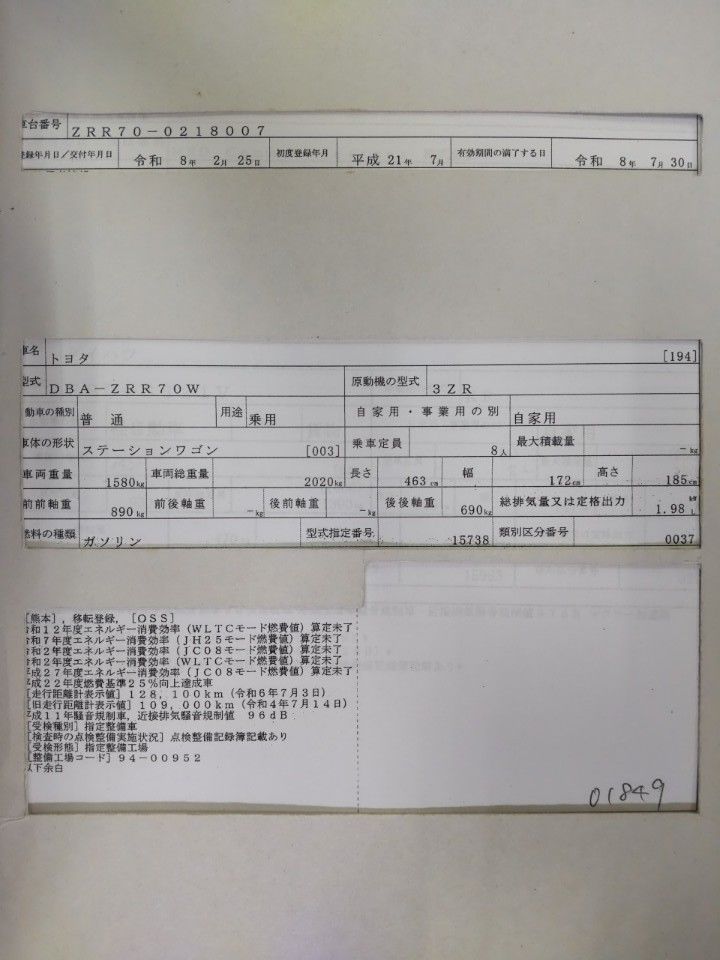 車台番号 ZRR70-0218007
登録年月日／交付年月日 令和 8年 2月 25日 初度登録年月 平成 21年 7月 有効期間の満了する日 令和 8年 7月 30日
車名 トヨタ [194]
型式 DBA-ZRR70W 原動機の型式 3ZR
動車の種別 普通 用途 乗用 自家用・事業用の別 自家用
車体の形状 ステーションワゴン [003] 乗車定員 8人 最大積載量 -kg
車両重量 1580kg 車両総重量 2020kg 長さ 463cm 幅 172cm 高さ 185cm
前前軸重 890kg 前後軸重 -kg 後前軸重 -kg 後後軸重 690kg 総排気量又は定格出力 1.98 kW L
燃料の種類 ガソリン 型式指定番号 15738 類別区分番号 0037
[熊本]，移転登録，[OSS]
令和12年度エネルギー消費効率（WLTCモード燃費値）算定未了
令和7年度エネルギー消費効率（JH25モード燃費値）算定未了
令和2年度エネルギー消費効率（JC08モード燃費値）算定未了
令和2年度エネルギー消費効率（WLTCモード燃費値）算定未了
平成27年度エネルギー消費効率（JC08モード燃費値）算定未了
平成22年度燃費基準25％向上達成車
[走行距離計表示値] 128，100km（令和6年7月3日）
[旧走行距離計表示値] 109，000km（令和4年7月14日）
平成11年騒音規制車，近接排気騒音規制値 96dB
[受検種別] 指定整備車
[検査時の点検整備実施状況] 点検整備記録簿記載あり
[受検形態] 指定整備工場
[整備工場コード] 94-00952
以下余白
01849